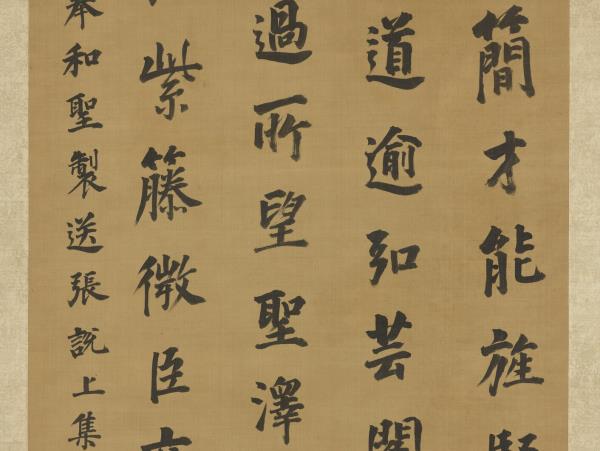 簡才能旌
道逾弘芸
過所望聖澤
紫籐微臣
奉和聖製送張說上集